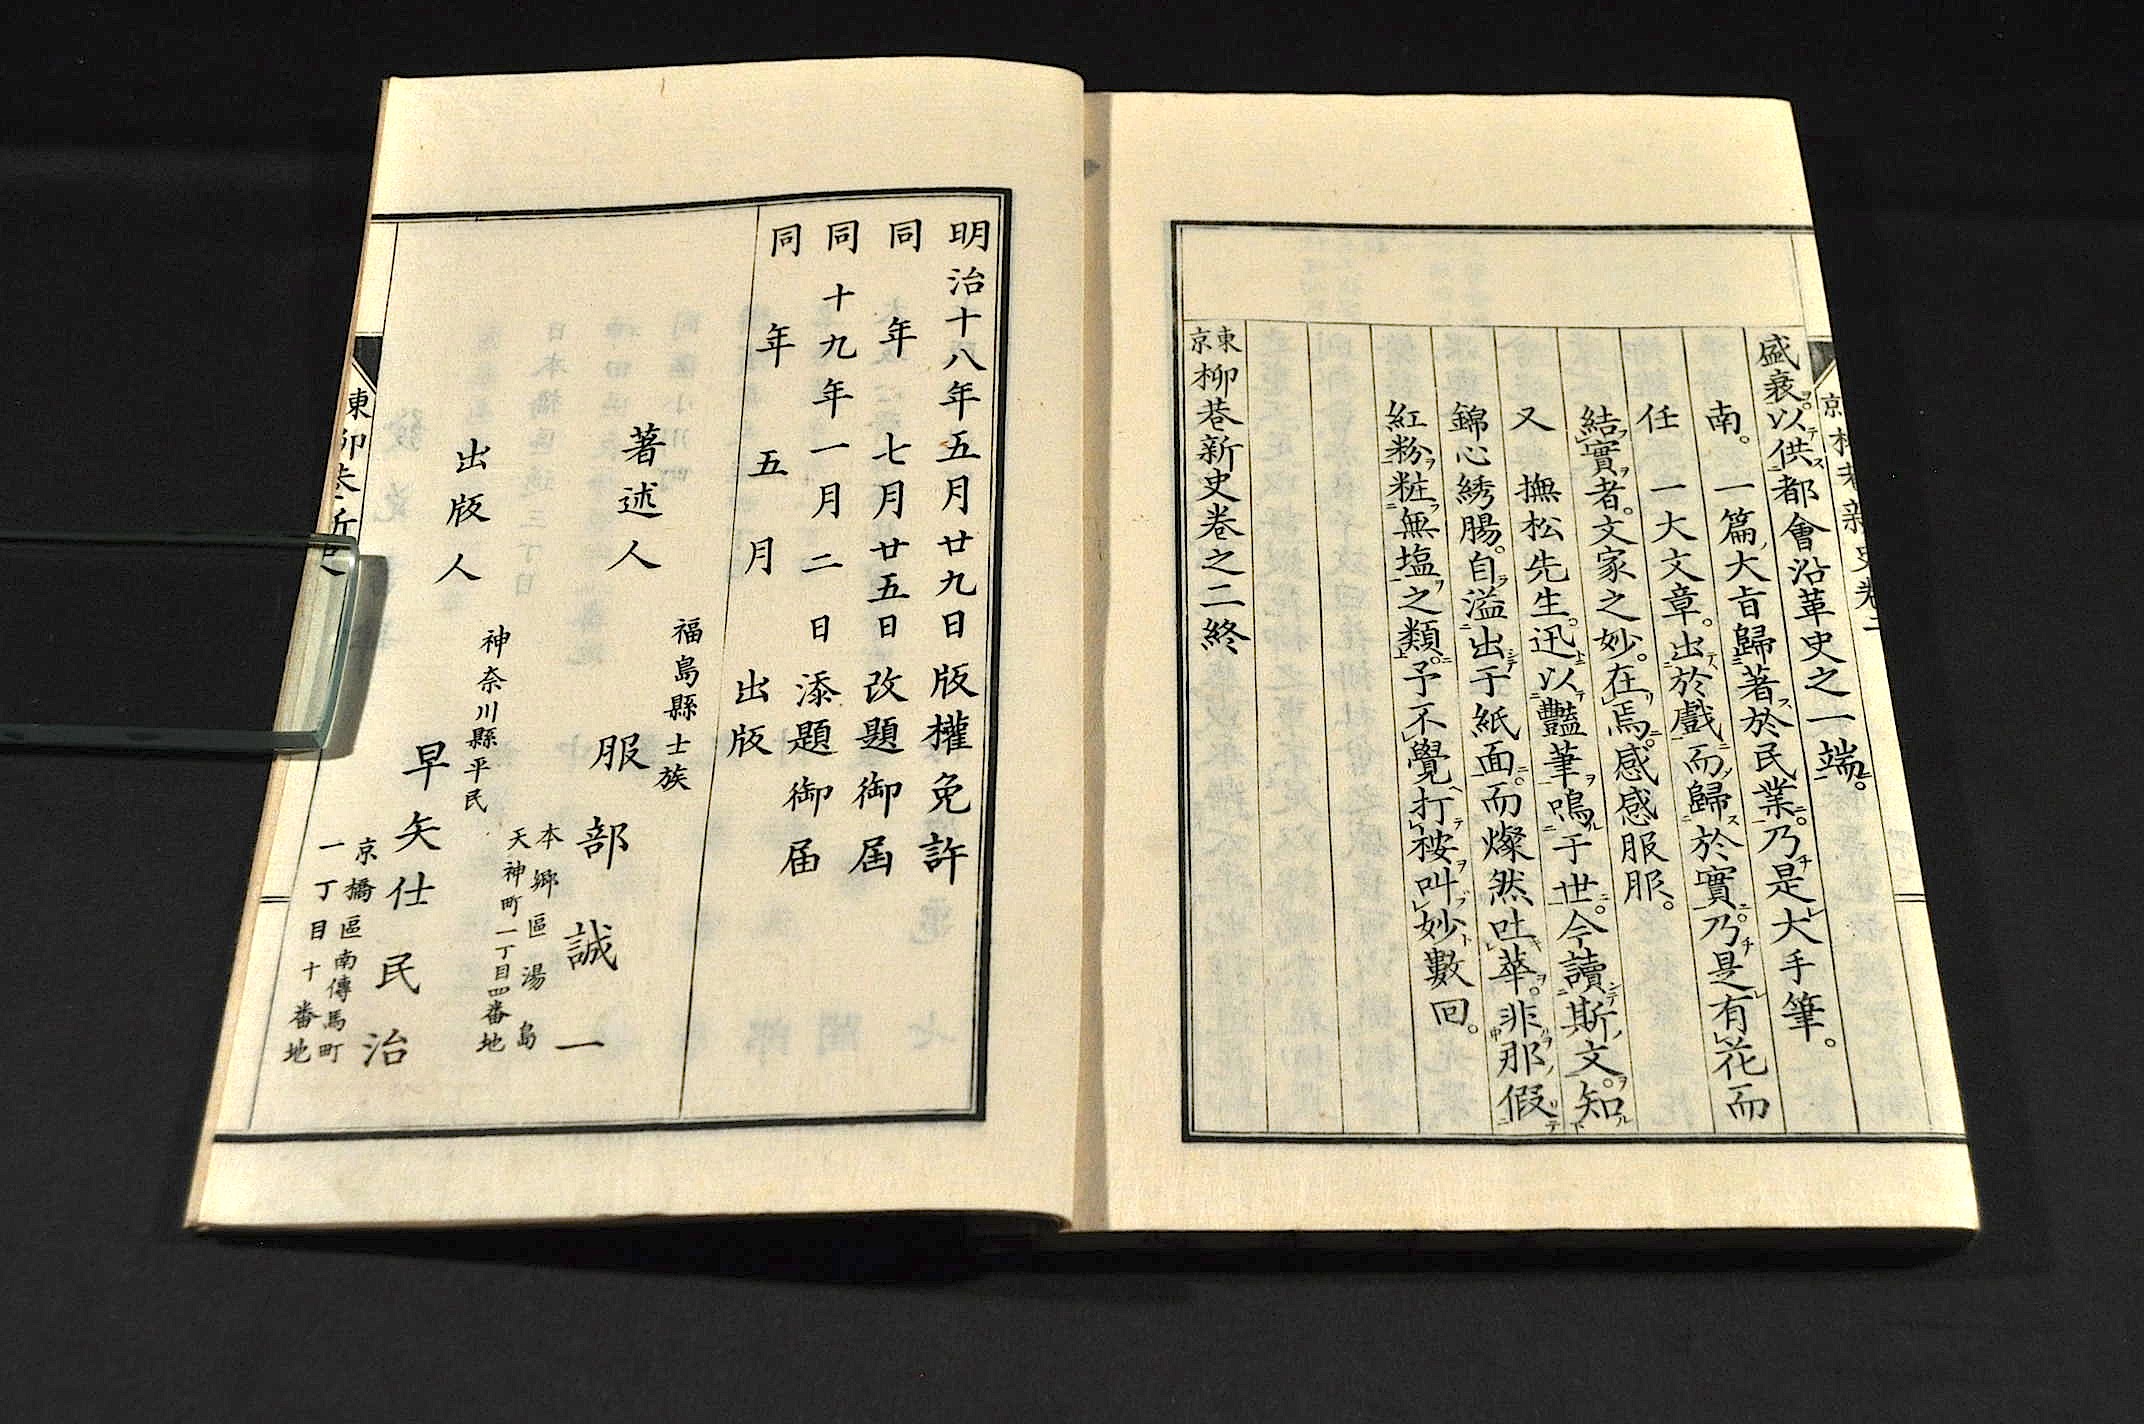 京柳巷新史卷二
盛衰。以供都會沿革史之一端。
南。一篇大旨歸著於民業。乃是大手筆。
任 一大文章。出於戲而歸於實。乃是有花而
結實者。文家之妙。在焉。感感服服。
又 撫松先生。迅以豔筆鳴于世。今讀斯文。知
錦心綉腸。自溢出于紙面。而燦然吐華。非那假
紅粉粧無塩之類。予不覺打桉叫妙數回。
東京柳巷新史卷之二終
明治十八年五月廿九日版權免許
同年七月廿五日改題御届
同十九年一月二日添題御届
同年五月出版
福島縣士族
著述人 服部誠一
本郷區湯島
天神町一丁目四番地
神奈川縣平民
出版人 早矢仕民治
京橋區南傳馬町
一丁目十番地
東